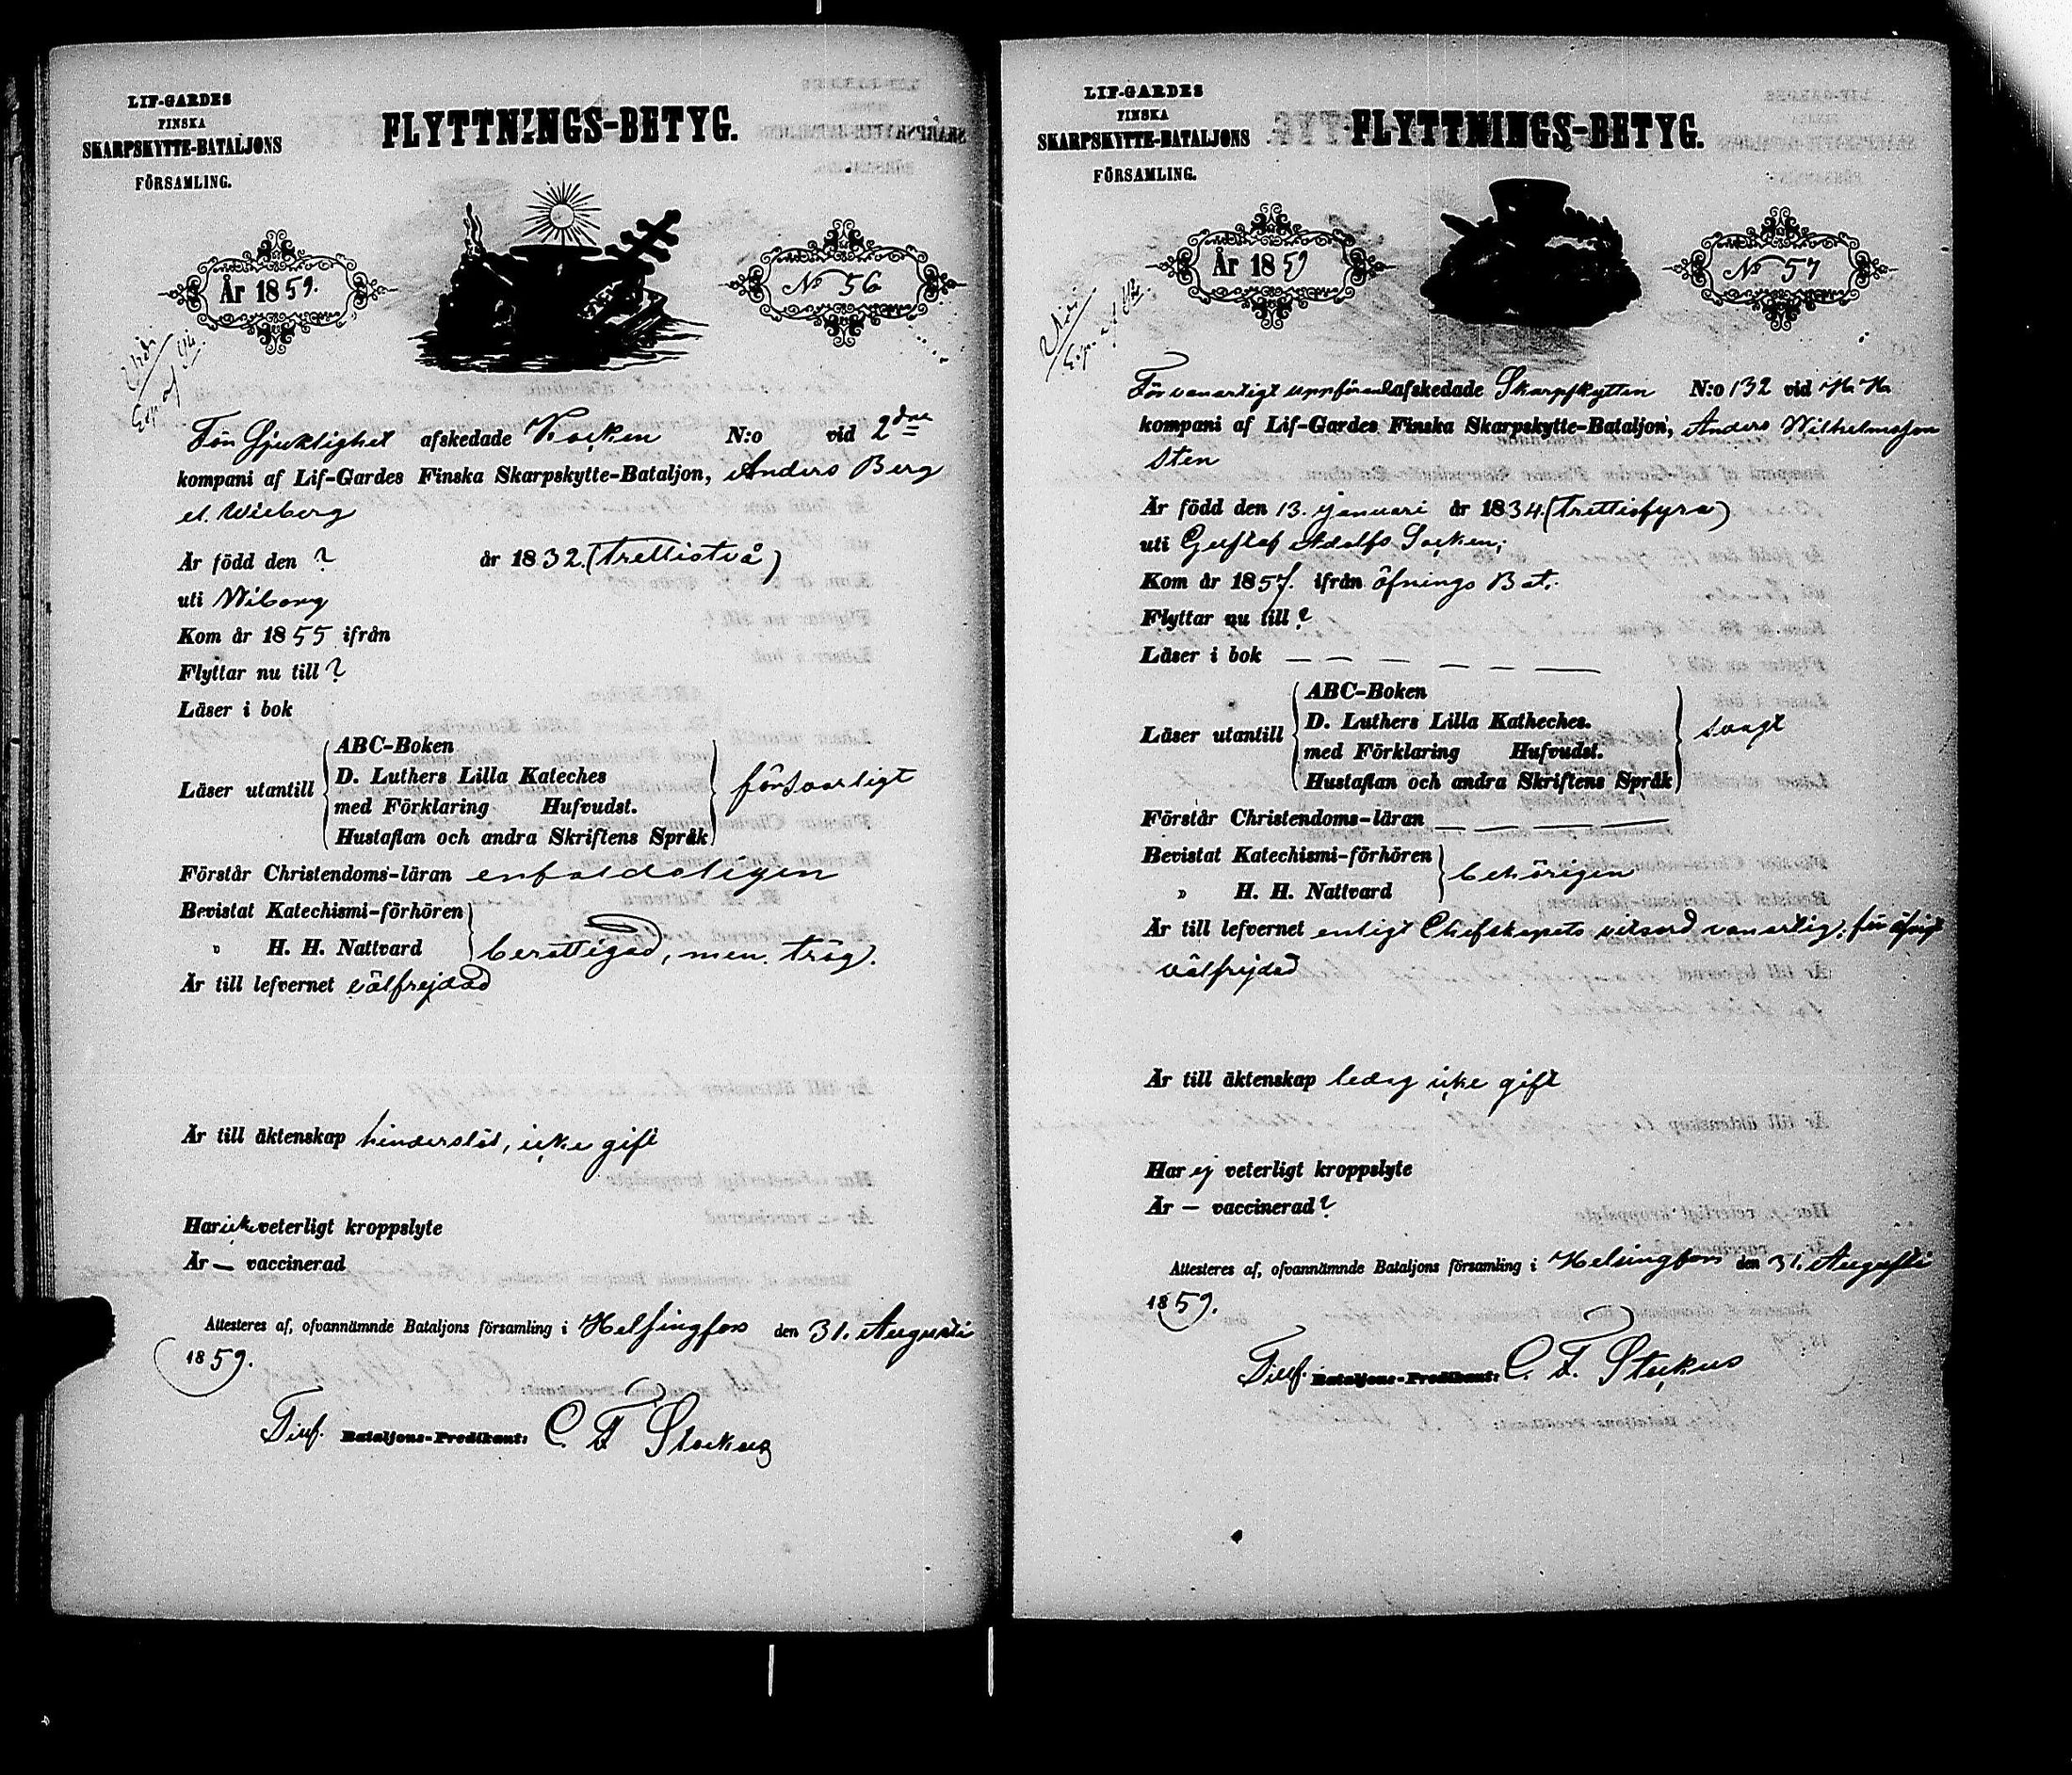 LIF-GARDES
FINSKA
SKARPSKYTTE-BATALJONS
FÖRSAMLING.
FLYTTNINGS-BETYG.
År 1859.
No 56
För Sjuklighet afskedade Kocken N:o vid 2dra
kompani af Lif-Gardes Finska Skarpskytte-Bataljon, Anders Berg
el. Wieberg
Är född den ? år 1832. (trettiotvå)
uti Wiborg
Kom år 1855 ifrån
Flyttar nu till ?
Läser i bok
Läser utantill
ABC-Boken
D. Luthers Lilla Kateches
med Förklaring Hufvudst.
Hustaflan och andra Skriftens Språk
försvarligt
Förstår Christendoms-läran enfaldeligen
Bevistat Katechismi-förhören
" H. H. Nattvard
berättigad, men trög.
Är till lefvernet välfrejdad
Är till äktenskap hinderslös, icke gift
Har icke veterligt kroppslyte
Är — vaccinerad
Attesteres af, ofvannämnde Bataljons församling i Helsingfors den 31. Augusti
1859.
Tillf. Bataljons-Predikant: C. F. Stockus
LIF-GARDES
FINSKA
SKARPSKYTTE-BATALJONS
FÖRSAMLING.
FLYTTNINGS-BETYG.
År 1859
No 57
För vanartigt uppförande afskedade Skarpskytten N:o 132 vid H. H.
kompani af Lif-Gardes Finska Skarpskytte-Bataljon, Anders Wilhelmsson
Sten
Är född den 13. januari år 1834. (trettiofyra)
uti Gustaf Adolfs Socken;
Kom år 1857. ifrån öfnings Bat.
Flyttar nu till ?
Läser i bok — — — — — —
Läser utantill
ABC-Boken
D. Luthers Lilla Katheches.
med Förklaring Hufvudst.
Hustaflan och andra Skriftens Språk
svagt
Förstår Christendoms-läran — — — —
Bevistat Katechismi-förhören
" H. H. Nattvard
behörigen
Är till lefvernet enligt Chefskapets vitsord vanartig; för öfrigt
välfrejdad
Är till äktenskap ledig icke gift
Har ej veterligt kroppslyte
Är — vaccinerad ?
Attesteres af, ofvannämnde Bataljons församling i Helsingfors den 31. Augusti
1859.
Tillf. Bataljons-Predikant: C. F. Stockus